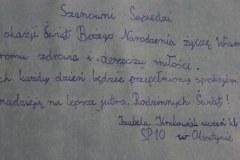 Szanowni Sąsiedzi
okazji Świąt Bożego Narodzenia życzę Wam
zdrowia i deszczu miłości.
każdy dzień będzie przepełniony spokojem
nadzieją na lepsze jutro. Rodzinnych Świąt!
Izabela uczeń kl.
SP10 w Olsztynie